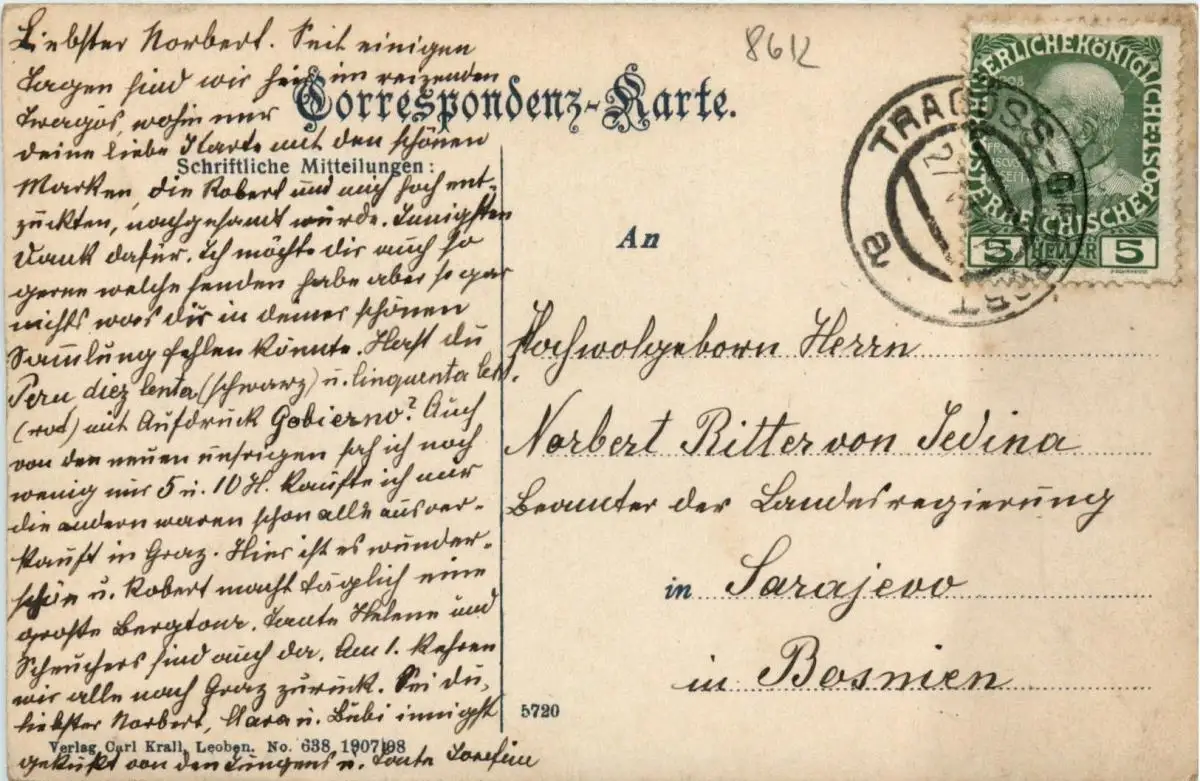 Liebster Norbert. Seit einigen
Tagen sind wir hier im reizenden
Tragös, wohin mir
deine liebe Karte mit den schönen
Marken, die Robert und mich hoch ent-
zückten, nachgesandt wurde. Innigsten
Dank dafür. Ich möchte dir auch so
gerne welche senden habe aber so gar
nichts was dir in deiner schönen
Sammlung fehlen könnte. Hast du
Peru diez centa (schwarz) u. cinquenta
(rot) mit Aufdruck Gobierno? Auch
von den neuen unsrigen sah ich noch
wenig nur 5 u. 10 H. kaufte ich nur
die andern waren schon alle ausver-
kauft in Graz. Hier ist es wunder-
schön u. Robert macht täglich eine
große Bergtour. Tante Helene und
Scheuchers sind auch da. Am 1. kehren
wir alle nach Graz zurück. Sei du,
liebster Norbert, Clara u. Bubi innigst
geküßt von den Jungens u. Tante Josefine
Correspondenz-Karte.
Schriftliche Mitteilungen:
Verlag Carl Krall, Leoben. No. 638 1907/08
5720
8612
KAISERLICHE KÖNIGLICHE ÖSTERREICHISCHE POST
1908
5 HELLER 5
TRAGÖSS-OBERORT
a
An
Hochwolgeborn Herrn
Norbert Ritter von Jedina
Beamter der Landesregierung
in Sarajevo
in Bosnien